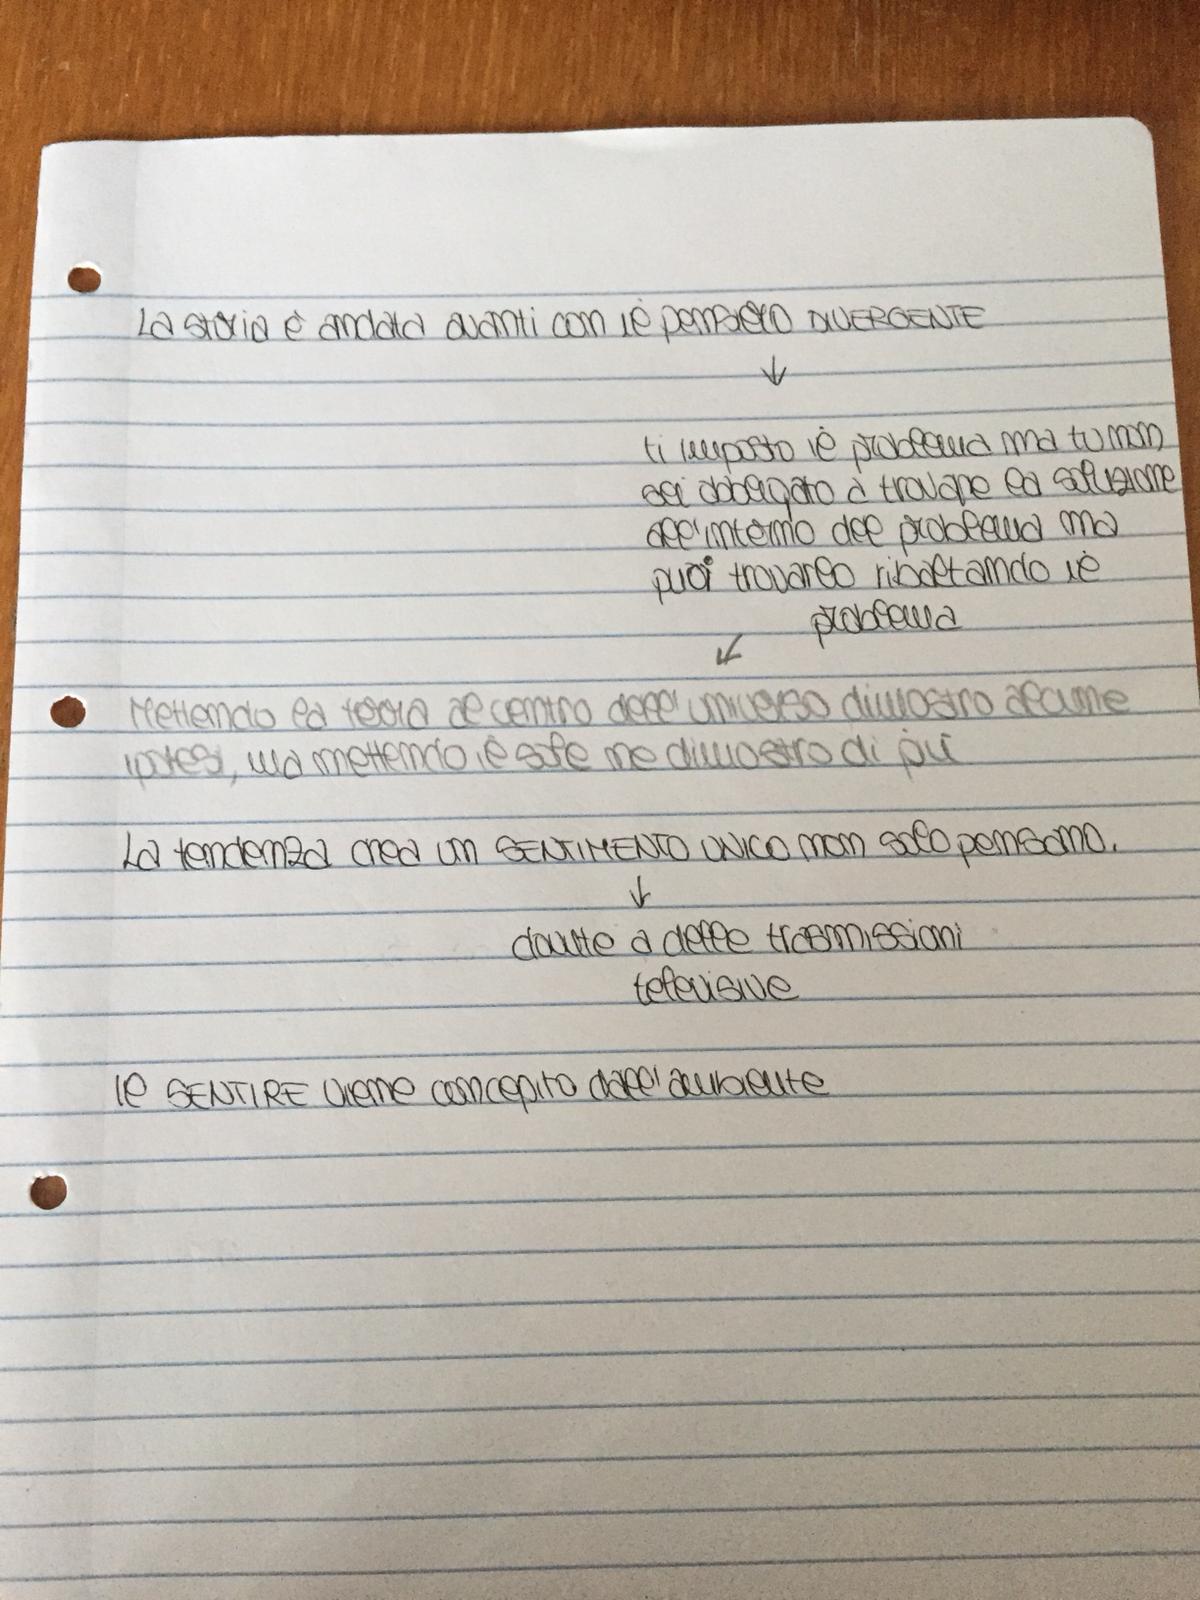 La storia è andata avanti con il pensiero DIVERGENTE
↓
ti imposto il problema ma tu non
sei obbligato a trovare la soluzione
all'interno del problema ma
puoi trovarlo ribaltando il
problema
↙
Mettendo la terra al centro dell'universo dimostro alcune
ipotesi, ma mettendo il sole ne dimostro di più
La tendenza crea un SENTIMENTO UNICO non solo pensano.
↓
davute a delle trasmissioni
televisive
Il SENTIRE viene concepito dall'ambiente